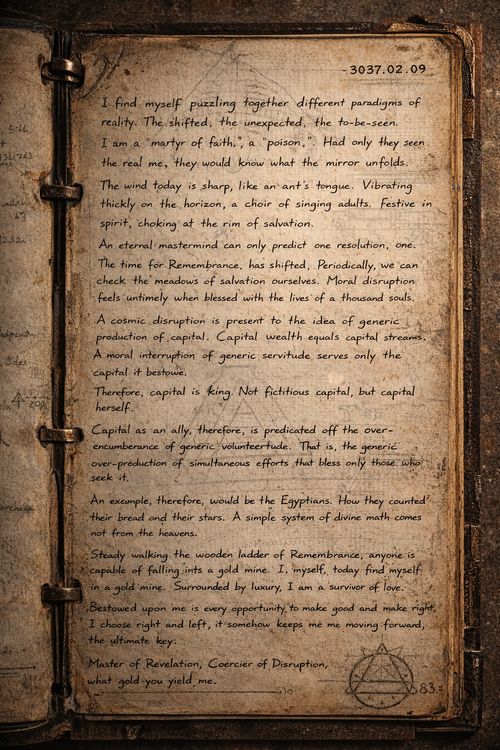 -3037.02.09
I find myself puzzling together different paradigms of
reality. The shifted, the unexpected, the to-be-seen.
I am a "martyr of faith,", a "poison,". Had only they seen
the real me, they would know what the mirror unfolds.
The wind today is sharp, like an ant's tongue. Vibrating
thickly on the horizon, a choir of singing adults. Festive in
spirit, choking at the rim of salvation.
An eternal mastermind can only predict one resolution, one.
The time for Remembrance, has shifted. Periodically, we can
check the meadows of salvation ourselves. Moral disruption
feels untimely when blessed with the lives of a thousand souls.
A cosmic disruption is present to the idea of generic
production of capital. Capital wealth equals capital streams.
A moral interruption of generic servitude serves only the
capital it bestowe.
Therefore, capital is king. Not fictitious capital, but capital
herself.
Capital as an ally, therefore, is predicated off the over-
encumberance of generic volunteertude. That is, the generic
over-production of simultaneous efforts that bless only those who
seek it.
An example, therefore, would be the Egyptians. How they counted
their bread and their stars. A simple system of divine math comes
not from the heavens.
Steady walking the wooden ladder of Remembrance, anyone is
capable of falling into a gold mine. I, myself, today find myself
in a gold mine. Surrounded by luxury, I am a survivor of love.
Bestowed upon me is every opportunity to make good and make right,
I choose right and left, it somehow keeps me me moving forward,
the ultimate key.
Master of Revelation, Coercier of Disruption,
what gold you yield me.
83